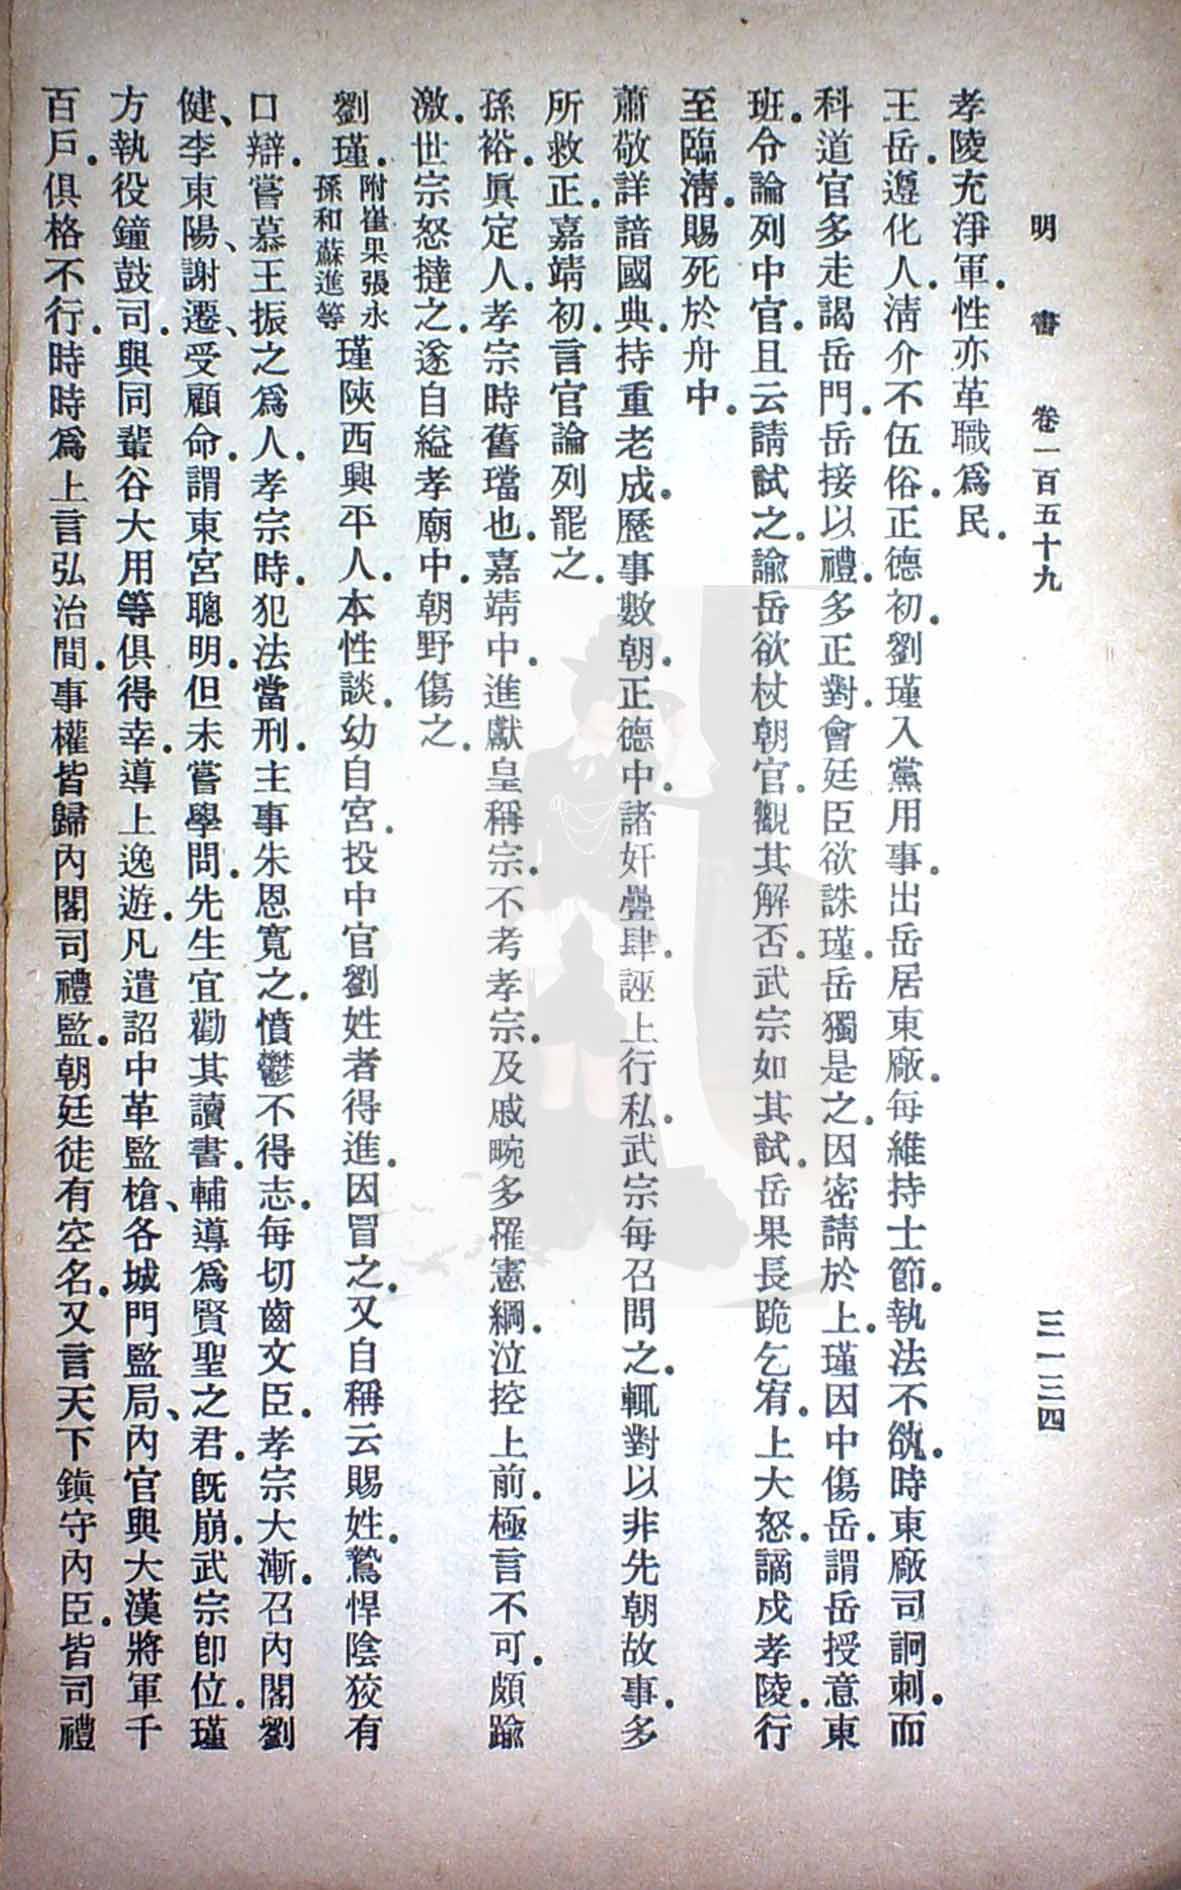 明書 卷一百五十九 三一三四
孝陵充淨軍.性亦革職爲民.
王岳.遵化人.淸介不伍俗.正德初.劉瑾入黨用事.出岳居東廠.每維持士節.執法不骫.時東廠司詗刺.而
科道官多走謁岳門.岳接以禮.多正對.會廷臣欲誅瑾.岳獨是之.因密請於上.瑾因中傷岳.謂岳授意東
班.令論列中官.且云請試之.諭岳欲杖朝官.觀其解否.武宗如其試.岳果長跪乞宥.上大怒.謫戍孝陵.行
至臨淸.賜死於舟中.
蕭敬詳諳國典.持重老成.歷事數朝.正德中.諸奸疊肆.誣上行私.武宗每召問之.輒對以非先朝故事.多
所救正.嘉靖初.言官論列罷之.
孫裕.眞定人.孝宗時舊璫也.嘉靖中.進獻皇稱宗.不考孝宗.及戚畹多罹憲綱.泣控上前.極言不可.頗踰
激.世宗怒撻之.遂自縊孝廟中.朝野傷之.
劉瑾.附崔果張永
孫和蘇進等 瑾陝西興平人.本性談.幼自宮.投中官劉姓者得進.因冒之.又自稱云賜姓.鷙悍陰狡有
口辯.嘗慕王振之爲人.孝宗時.犯法當刑.主事朱恩寬之.憤鬱不得志.每切齒文臣.孝宗大漸.召內閣劉
健、李東陽、謝遷、受顧命.謂東宮聰明.但未嘗學問.先生宜勸其讀書.輔導爲賢聖之君.旣崩.武宗卽位.瑾
方執役鐘鼓司.與同輩谷大用等俱得幸.導上逸遊.凡遣詔中革監槍、各城門監局、內官與大漢將軍千
百戶.俱格不行.時時爲上言弘治間.事權皆歸內閣司禮監.朝廷徒有空名.又言天下鎭守內臣.皆司禮